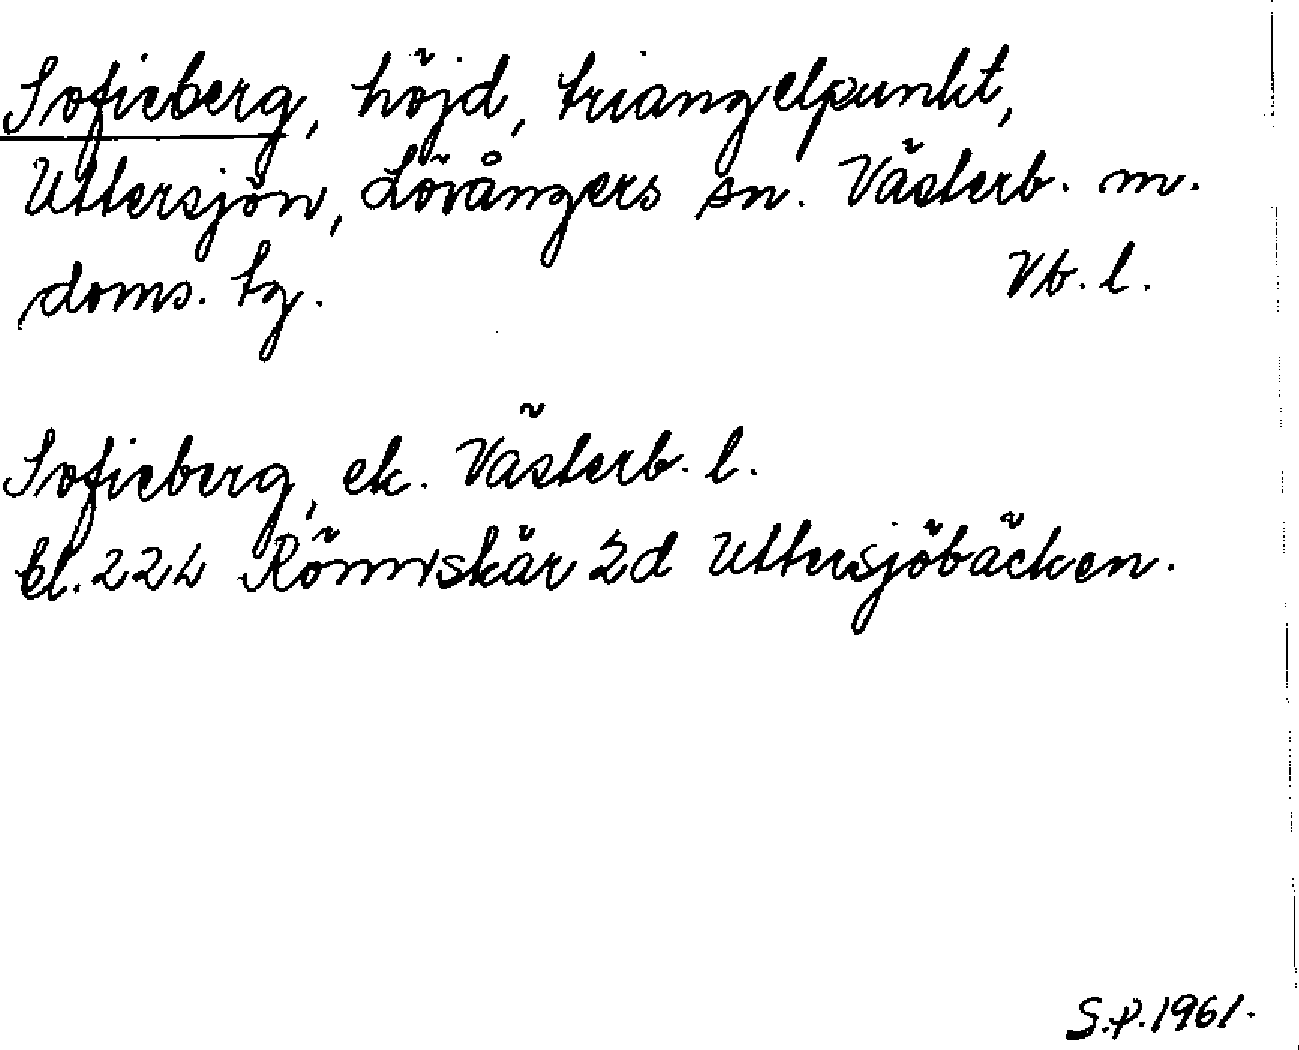 Sofieberg, höjd, triangelpunkt,
Uttersjön, Lövångers sn. Västerb. m.
doms. tg. Vb. l.
Sofieberg, ek. Västerb. l.
bl. 224 Rönnskär 2d Uttersjöbäcken.
S.P. 1961.